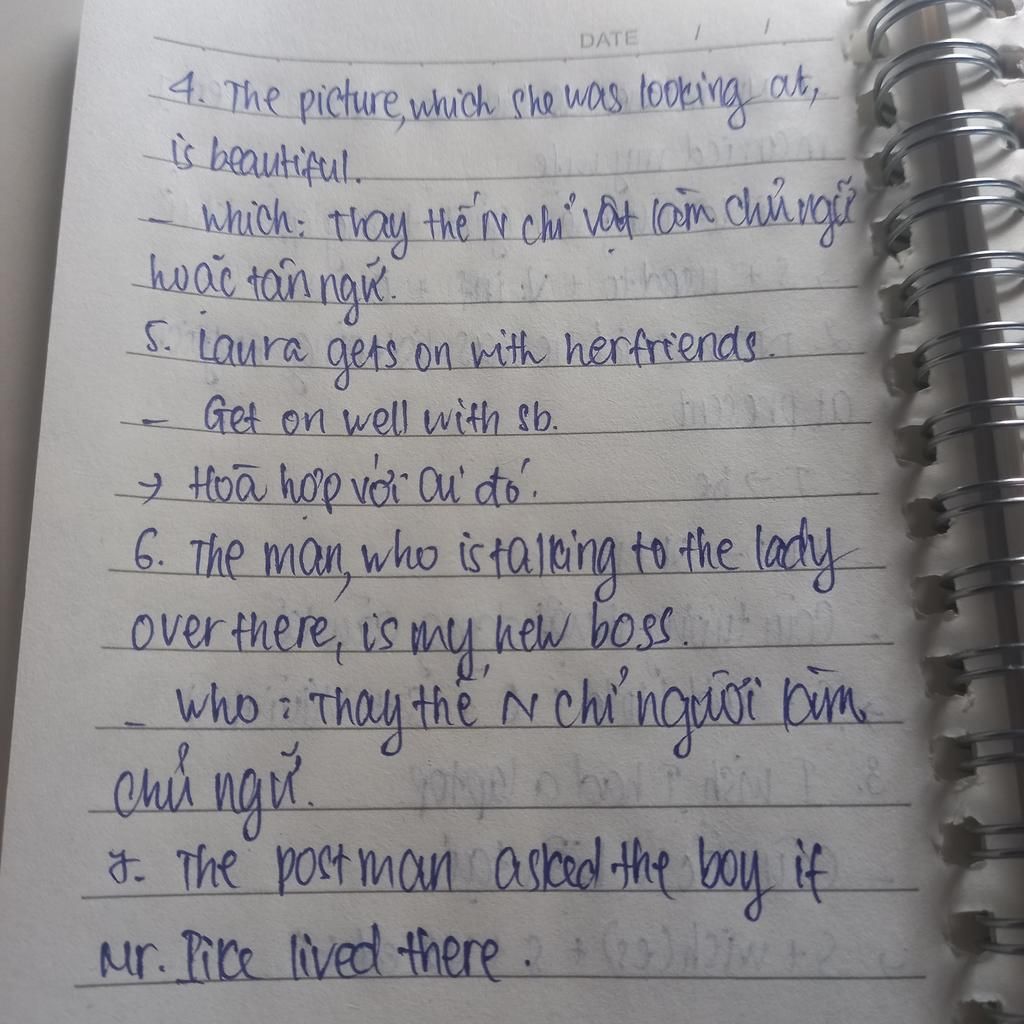 DATE / /
4. The picture, which she was looking at,
is beautiful.
- which: Thay thế N chỉ vật làm chủ ngữ
hoặc tân ngữ.
5. Laura gets on with her friends.
- Get on well with sb.
→ Hoà hợp với ai đó.
6. The man, who is talking to the lady
over there, is my new boss.
- Who: Thay thế N chỉ người làm
chủ ngữ.
7. The postman asked the boy if
Mr. Pike lived there.